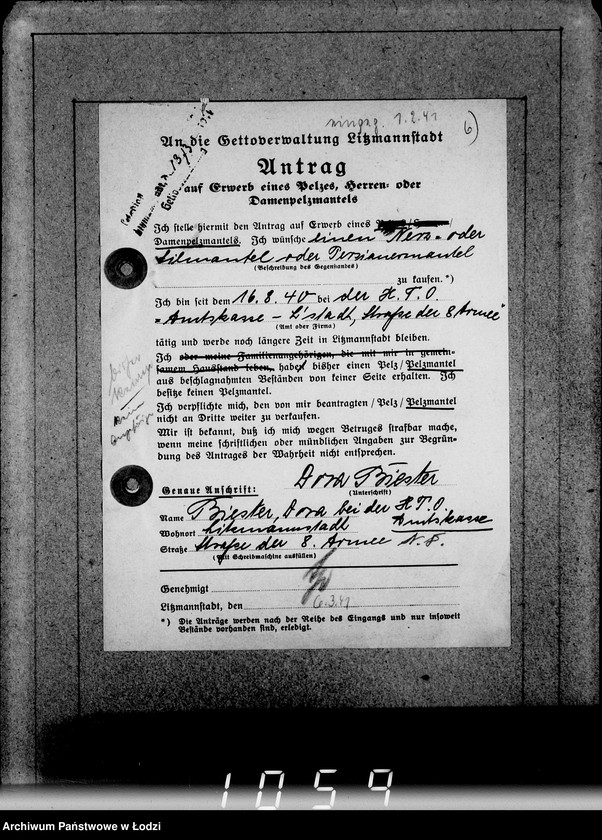 eingeg. 1.2.41
6)
An die Gettoverwaltung Litzmannstadt
13/3
Getto
Antrag
auf Erwerb eines Pelzes, Herren- oder
Damenpelzmantels
Ich stelle hiermit den Antrag auf Erwerb eines
Damenpelzmantels. Ich wünsche einen Nerz- oder
Filmantel oder Persianermantel
(Beschreibung des Gegenstandes)
zu kaufen.*)
Ich bin seit dem 16.8.40 bei der H.T.O.
"Amtskasse - L'stadt, Straße der 8 Armee"
(Amt oder Firma)
tätig und werde noch längere Zeit in Litzmannstadt bleiben.
Ich oder meine Familienangehörigen, die mit mir in gemein-
samem Hausstand leben, habe bisher einen Pelz/Pelzmantel
aus beschlagnahmten Beständen von keiner Seite erhalten. Ich
besitze keinen Pelzmantel.
Ich verpflichte mich, den von mir beantragten/Pelz/Pelzmantel
nicht an Dritte weiter zu verkaufen.
Mir ist bekannt, daß ich mich wegen Betruges strafbar mache,
wenn meine schriftlichen oder mündlichen Angaben zur Begrün-
dung des Antrages der Wahrheit nicht entsprechen.
Dora Biester
Genaue Anschrift:
(Unterschrift)
Name Biester, Dora bei der H.T.O.
Wohnort Litzmannstadt Amtskasse
Straße Straße der 8. Armee N.S.
(Mit Schreibmaschine ausfüllen)
Genehmigt
Litzmannstadt, den 6.3.41
*) Die Anträge werden nach der Reihe des Eingangs und nur insoweit
Bestände vorhanden sind, erledigt.
1059
Archiwum Państwowe w Łodzi